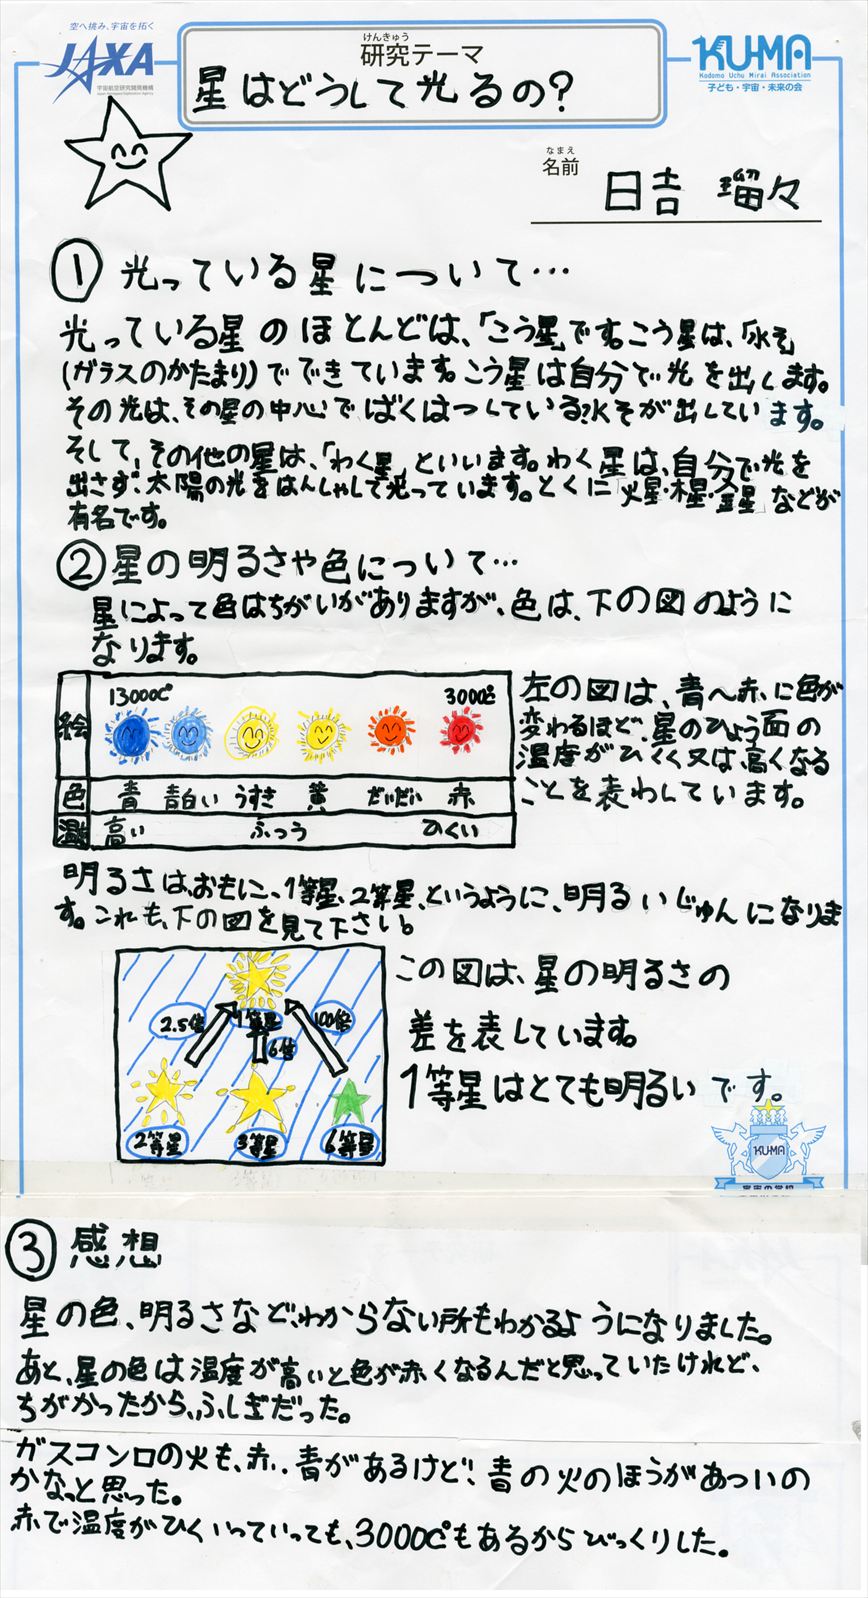 空へ挑み、宇宙を拓く
JAXA
宇宙航空研究開発機構
Japan Aerospace Exploration Agency
けんきゅう
研究テーマ
星はどうして光るの?
KU-MA
Kodomo Uchu Mirai Association
子ども・宇宙・未来の会
なまえ
名前
日吉 瑠々
① 光っている星について…
光っている星のほとんどは、「こう星」です。こう星は、「水そ」
(ガラスのかたまり)でできています。こう星は自分で光を出します。
その光は、その星の中心でばくはつしている水そが出しています。
そして、その他の星は、「わく星」といいます。わく星は、自分で光を
出さず、太陽の光をはんしゃして光っています。とくに「火星・木星・金星」などが
有名です。
② 星の明るさや色について…
星によって色はちがいがありますが、色は、下の図のように
なります。
絵 13000℃ 3000℃
色 青 青白い うすき 黄 だいだい 赤
温度 高い ふつう ひくい
左の図は、青へ赤に色が
変わるほど、星のひょう面の
温度がひくく又は、高くなる
ことを表わしています。
明るさは、おもに、1等星、2等星、というように、明るいじゅんになりま
す。これも、下の図を見て下さい。
2.5倍 1等星 100倍
6倍
2等星 3等星 6等星
この図は、星の明るさの
差を表しています。
1等星はとても明るいです。
KU-MA
宇宙の学校
③ 感想
星の色、明るさなど、わからない所もわかるようになりました。
あと、星の色は温度が高いと色が赤くなるんだと思っていたけれど、
ちがかったから、ふしぎだった。
ガスコンロの火も、赤、青があるけど、青の火のほうがあついの
かなっと思った。
赤で温度がひくいっていっても、3000℃もあるからびっくりした。